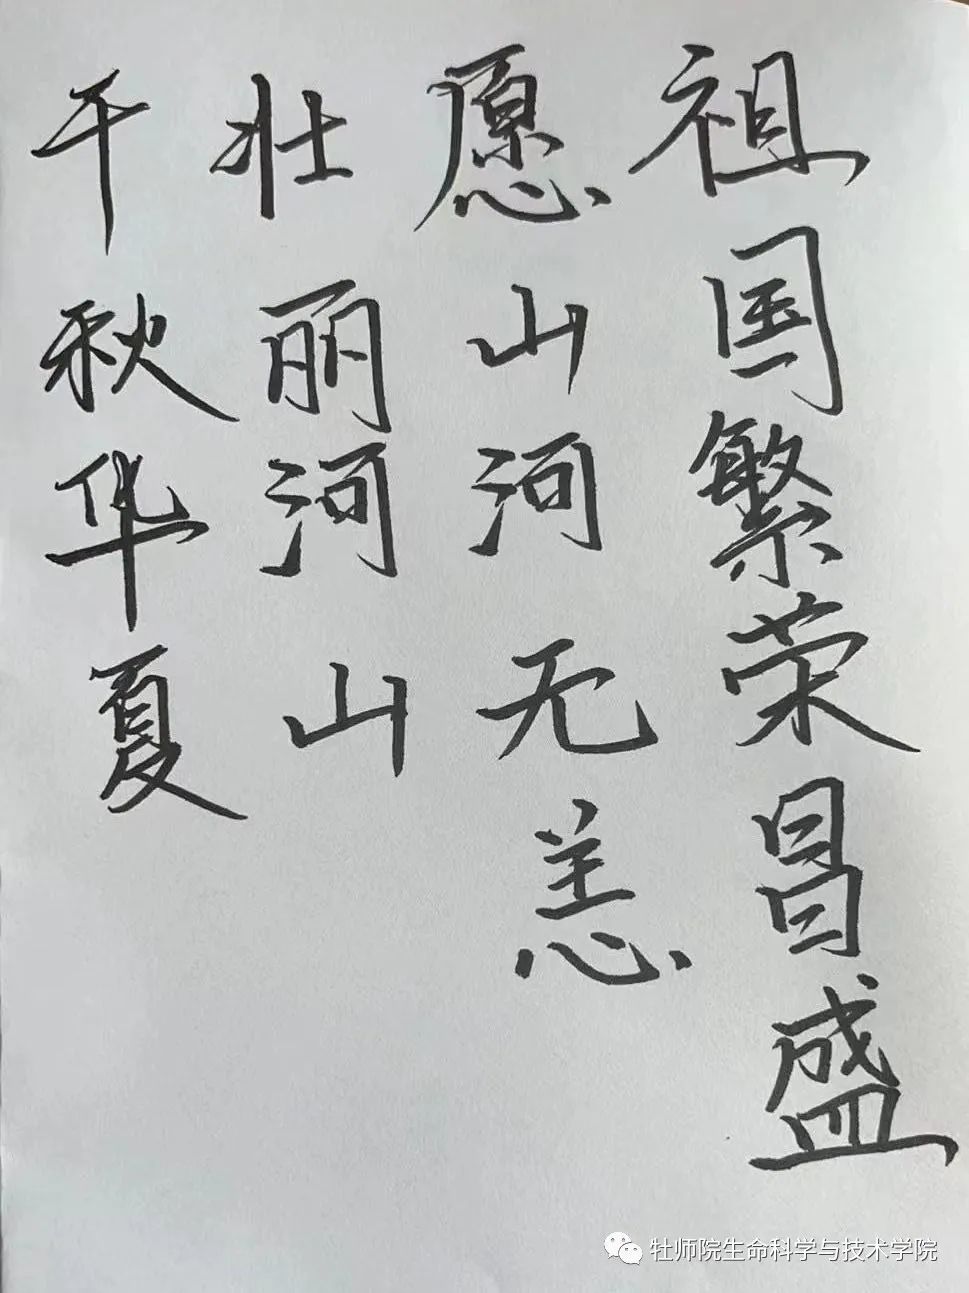 祖国繁荣昌盛
愿山河无恙
壮丽河山
千秋华夏
牡师院生命科学与技术学院